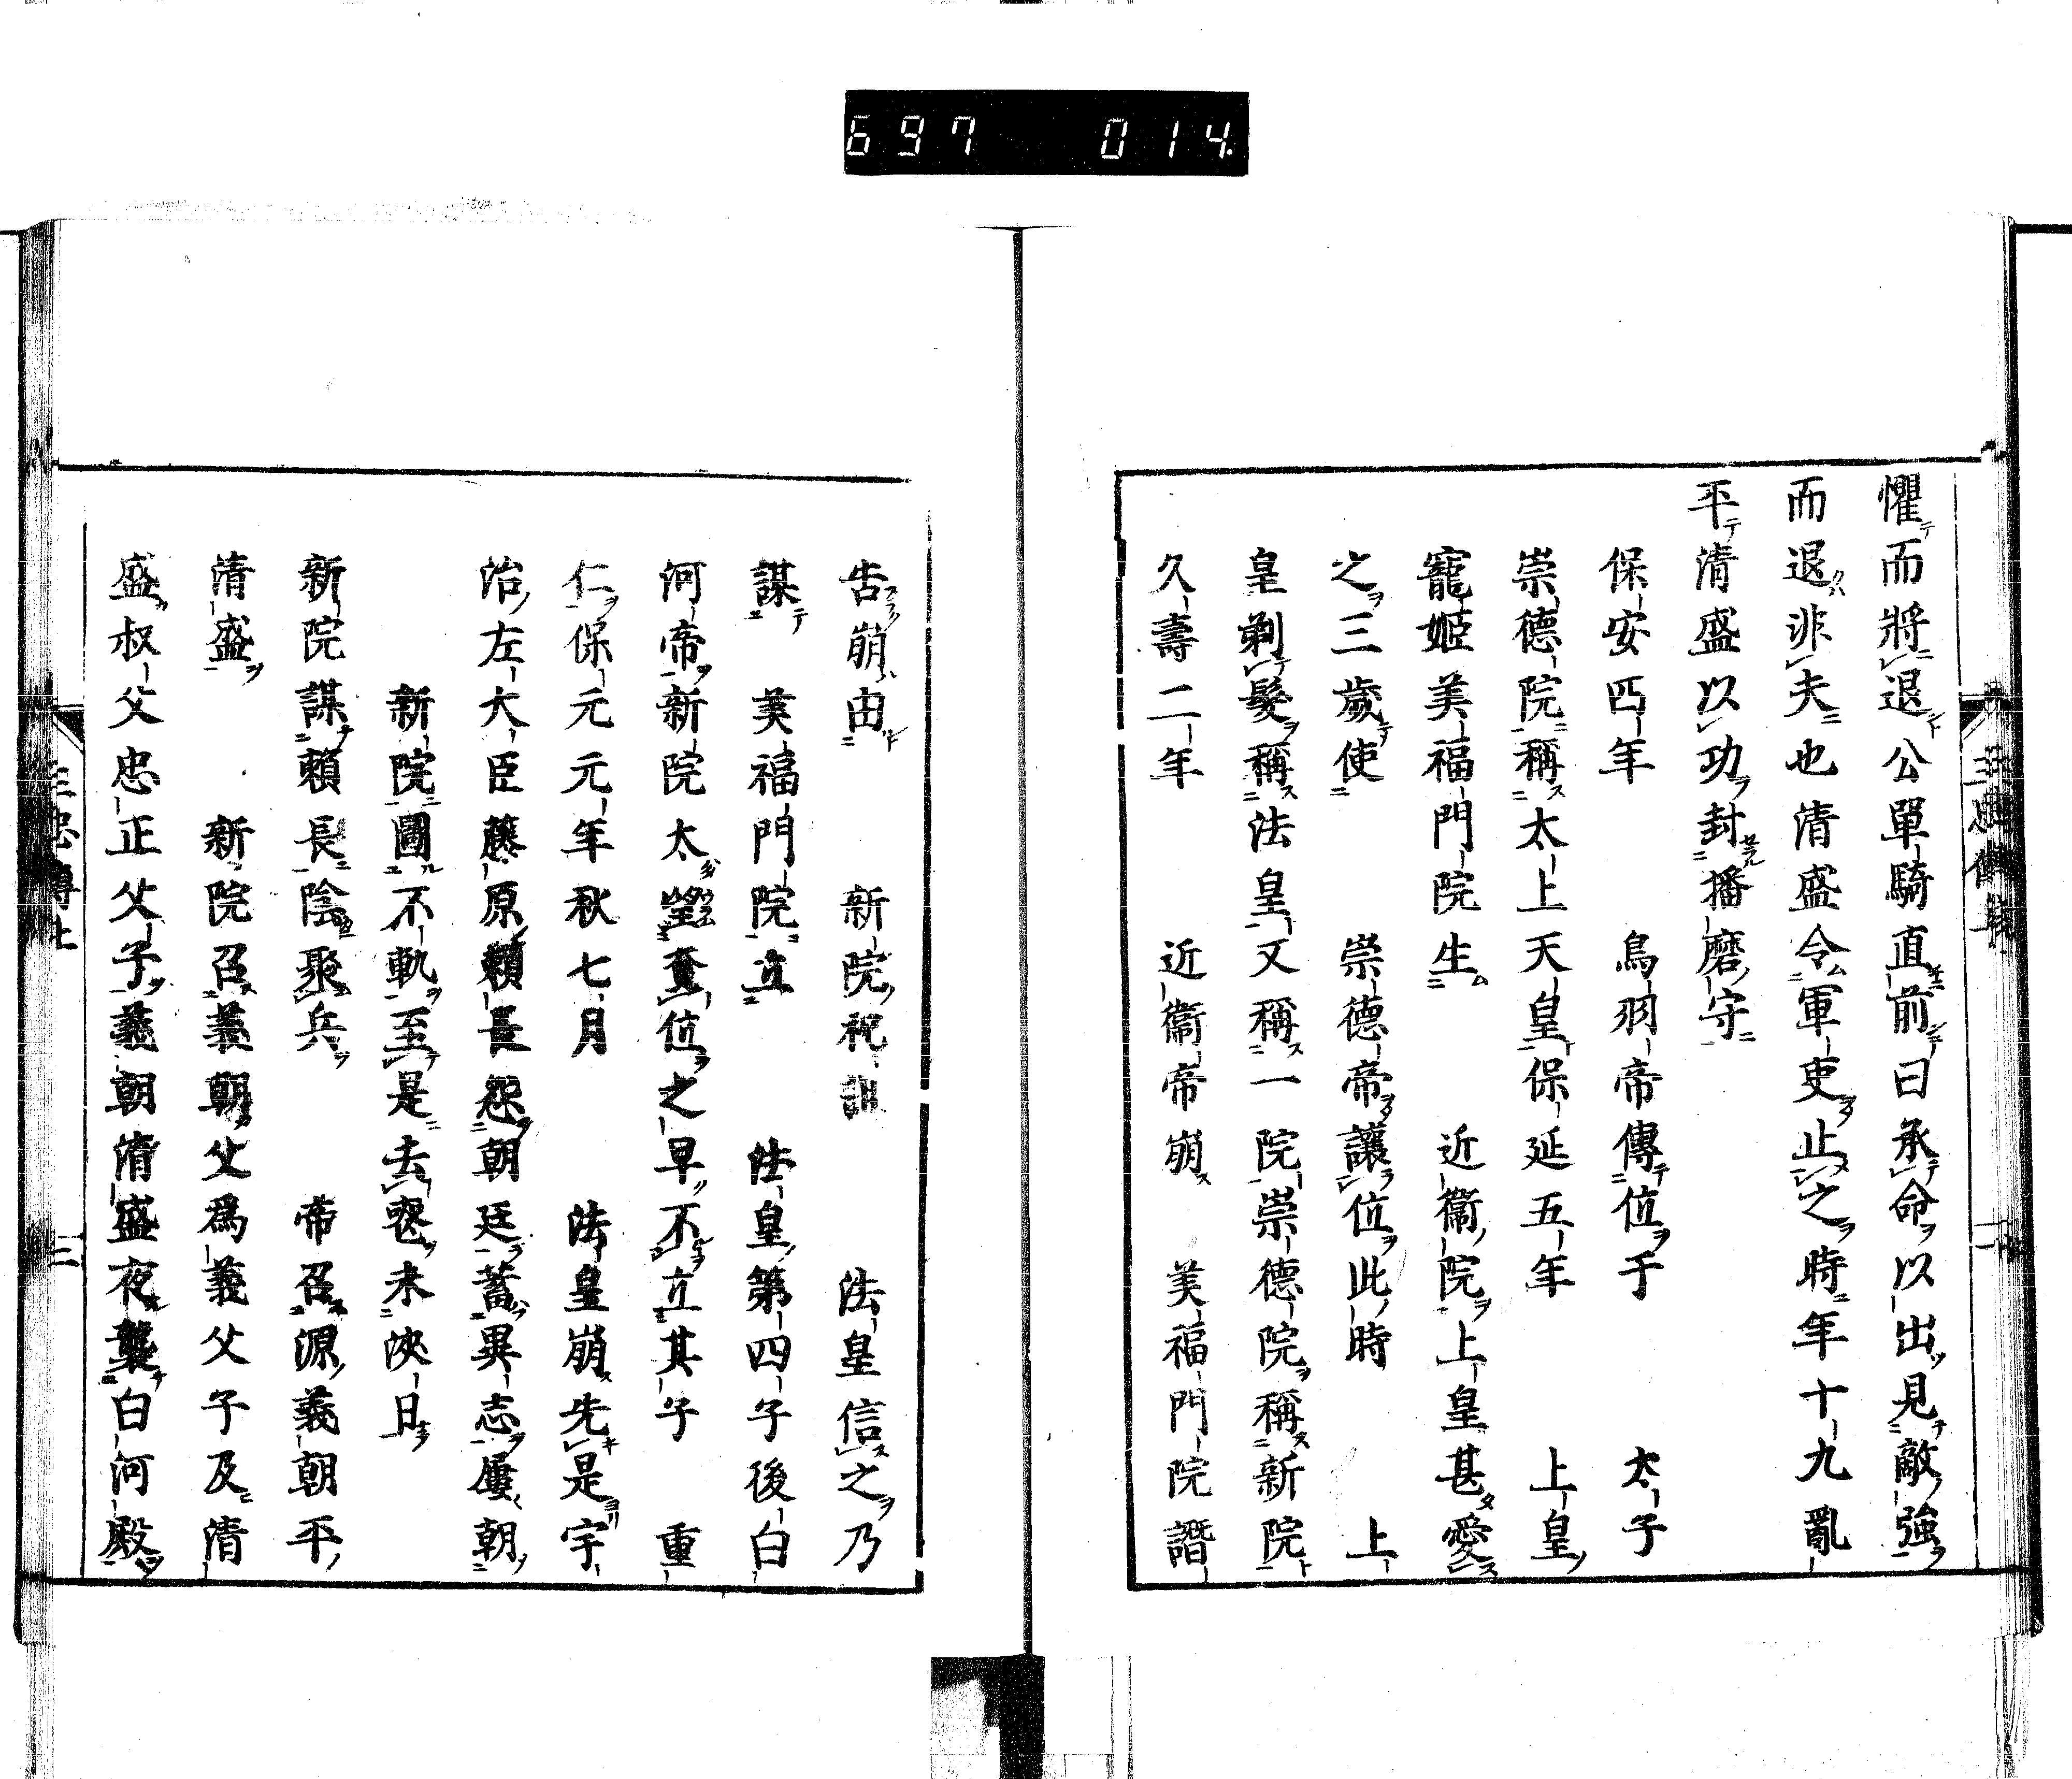 697 014
懼而將退公單騎直前曰承命以出見敵強
而退非夫也清盛令軍吏止之時年十九亂
平清盛以功封播磨守
保安四年　鳥羽帝傳位于　太子
崇德院稱太上天皇保延五年　上皇
寵姬美福門院生　近衞院上皇甚愛
之三歲使　崇德帝讓位此時　上
皇剃髮稱法皇又稱一院崇德院稱新院
久壽二年　近衞帝崩　美福門院譖
告崩由　新院祝詛　法皇信之乃
謀　美福門院立　法皇第四子後白
河帝新院太望奪位之早不立其子　重
仁保元元年秋七月　法皇崩先是宇
治左大臣藤原賴長怨朝廷蓄異志屢朝
新院圖不軌至是去喪未浹日
新院謀賴長陰聚兵　帝召源義朝平
清盛　新院召義朝父爲義父子及清
盛叔父忠正父子義朝清盛夜襲白河殿
三忠傳上
二